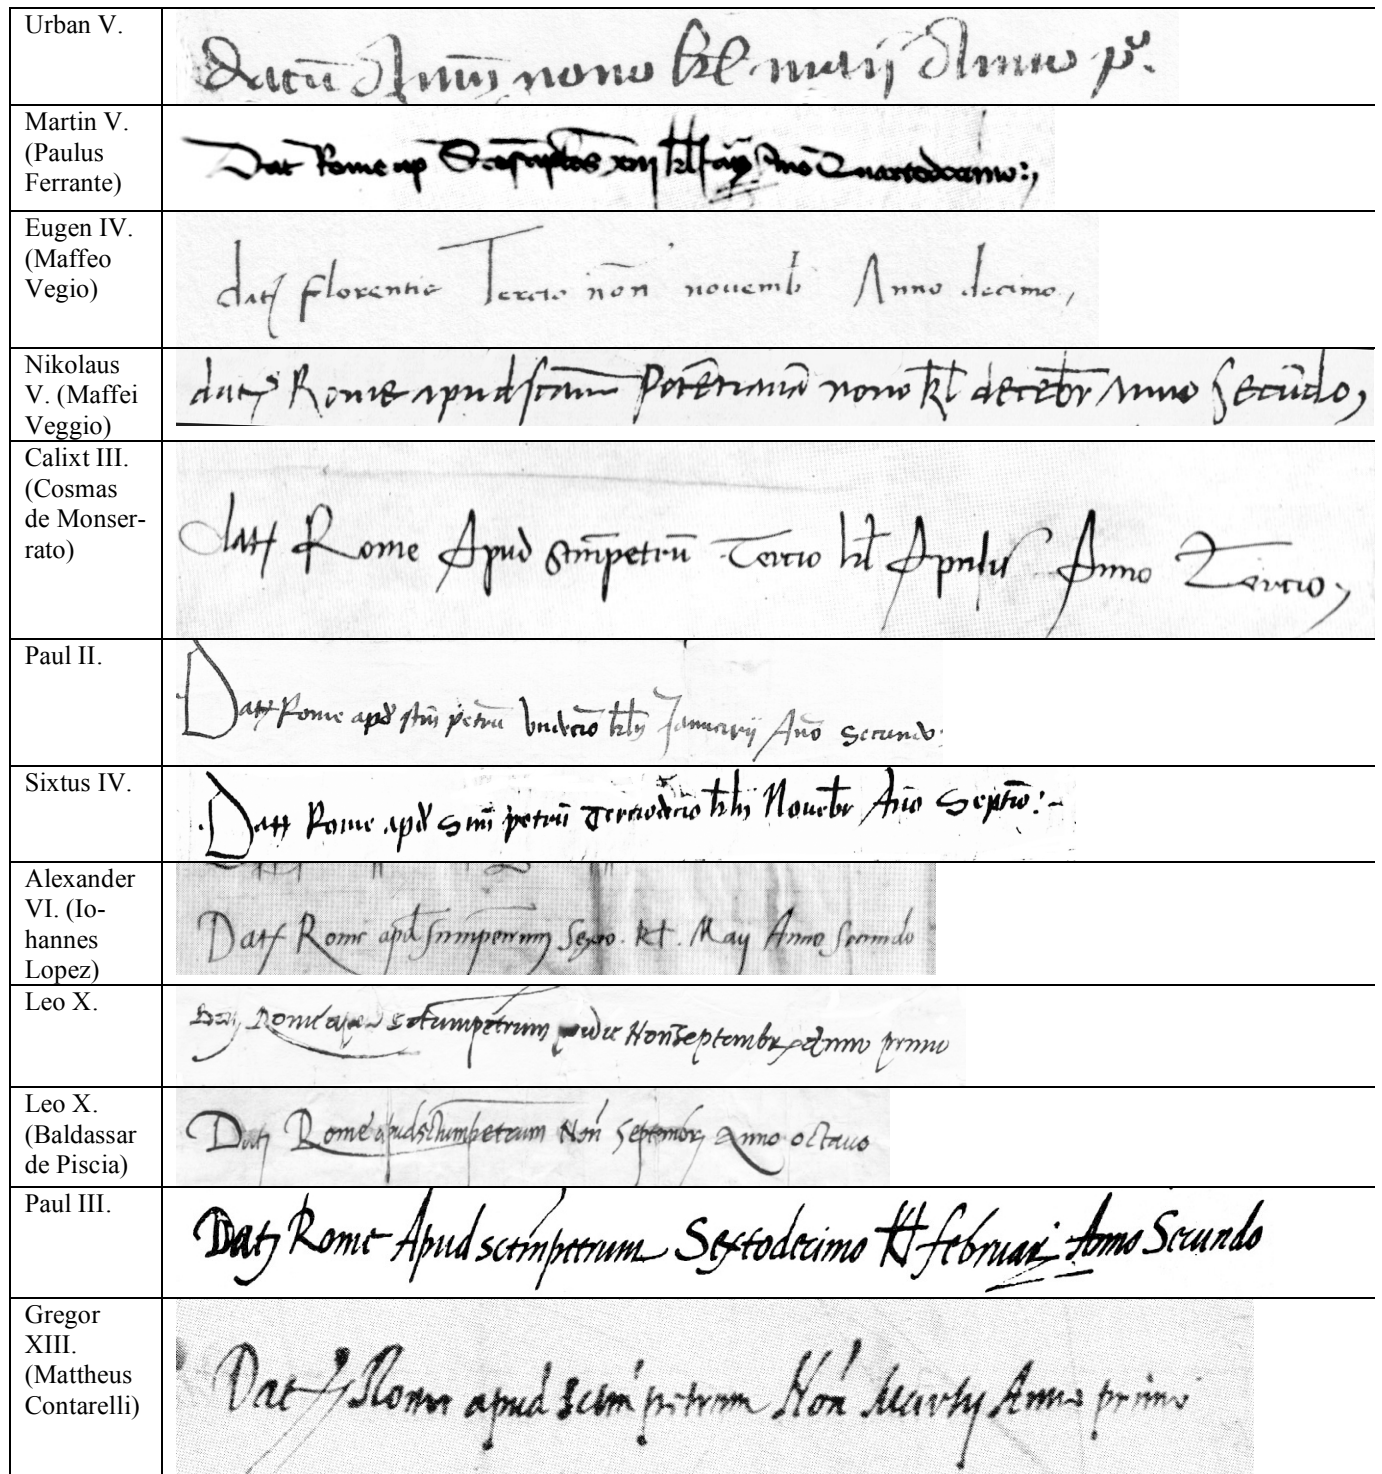 Urban V.
datū Auin̄ nono kl maij Anno p°.
Martin V.
(Paulus
Ferrante)
Dat Rome ap Scōsaplōs xiij kl Anō Quartodecimo
Eugen IV.
(Maffeo
Vegio)
dat florentie Tercio nōn novemb Anno decimo,
Nikolaus
V. (Maffei
Veggio)
dat Rome apud scam Potētianā nono kl decēbr Anno Secūdo,
Calixt III.
(Cosmas
de Monser-
rato)
dat Rome Apud scm̄petrū Tercio kl Aprilis Anno Tercio,
Paul II.
Dat Rome apd stm̄ petrū Undecīo klīi Januarij Anō Secundo.
Sixtus IV.
Dat Rome apd Sm̄ petrū Terciodecīo klīi Novēbr Anō Septīo:-
Alexander
VI. (Io-
hannes
Lopez)
Dat Rome apd Sm̄mpetrum Sexto. kl. Maij Anno Secundo
Leo X.
Dat Rome apud Sctumpetrum pridie Non Septembr Anno primo
Leo X.
(Baldassar
de Piscia)
Dat Rome apudsctumpetrum Non Septembr Anno octavo
Paul III.
Dat Rome Apud sctm̄petrum Sextodecimo kl februarij Anno Secundo
Gregor
XIII.
(Mattheus
Contarelli)
Dat Rome apud sctm̄ petrum Non Martij Anno primo